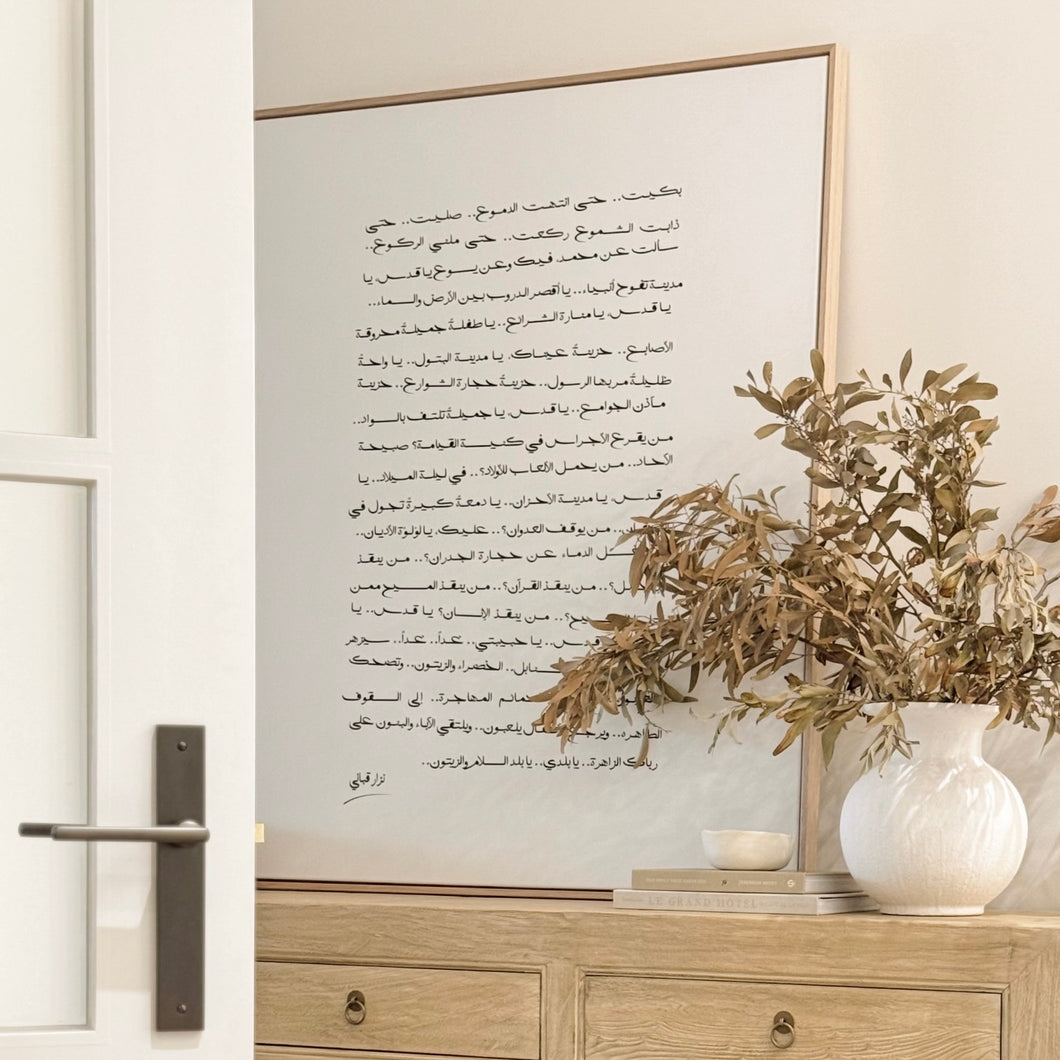 بكيت.. حتى انتهت الدموع.. صليت.. حتى
ذابت الشموع ركعت.. حتى ملني الركوع..
سألت عن محمد، فيك وعن يسوع يا قدس، يا
مدينة تفوح أنبياء.. يا أقصر الدروب بين الأرض والسماء..
يا قدس، يا منارة الشرائع.. يا طفلةً جميلةً محروقة
الأصابع.. حزينةً عيناك، يا مدينة البتول.. يا واحةً
ظليلةً مر بها الرسول.. حزينةً حجارة الشوارع.. حزينة
مآذن الجوامع.. يا قدس، يا جميلةً تلتف بالسواد..
من يقرع الأجراس في كنيسة القيامة؟ صبيحة
الآحاد.. من يحمل الألعاب للأولاد؟.. في ليلة الميلاد.. يا
قدس، يا مدينة الأحزان.. يا دمعةً كبيرةً تجول في
من يوقف العدوان؟.. عليك، يا لؤلؤة الأديان..
الدماء عن حجارة الجدران؟.. من ينقذ
من ينقذ القرآن؟.. من ينقذ المسيح ممن
من ينقذ الإنسان؟ يا قدس.. يا
يا حبيبتي.. غداً.. غداً.. سيزهر
الخضراء والزيتون.. وتضحك
المهاجرة.. إلى السقوف
الطاهره.. يلعبون.. ويلتقي الآباء والبنون على
رباك الزاهرة.. يا بلدي.. يا بلد السلام والزيتون..
نزار قباني
LE GRAND HOTEL